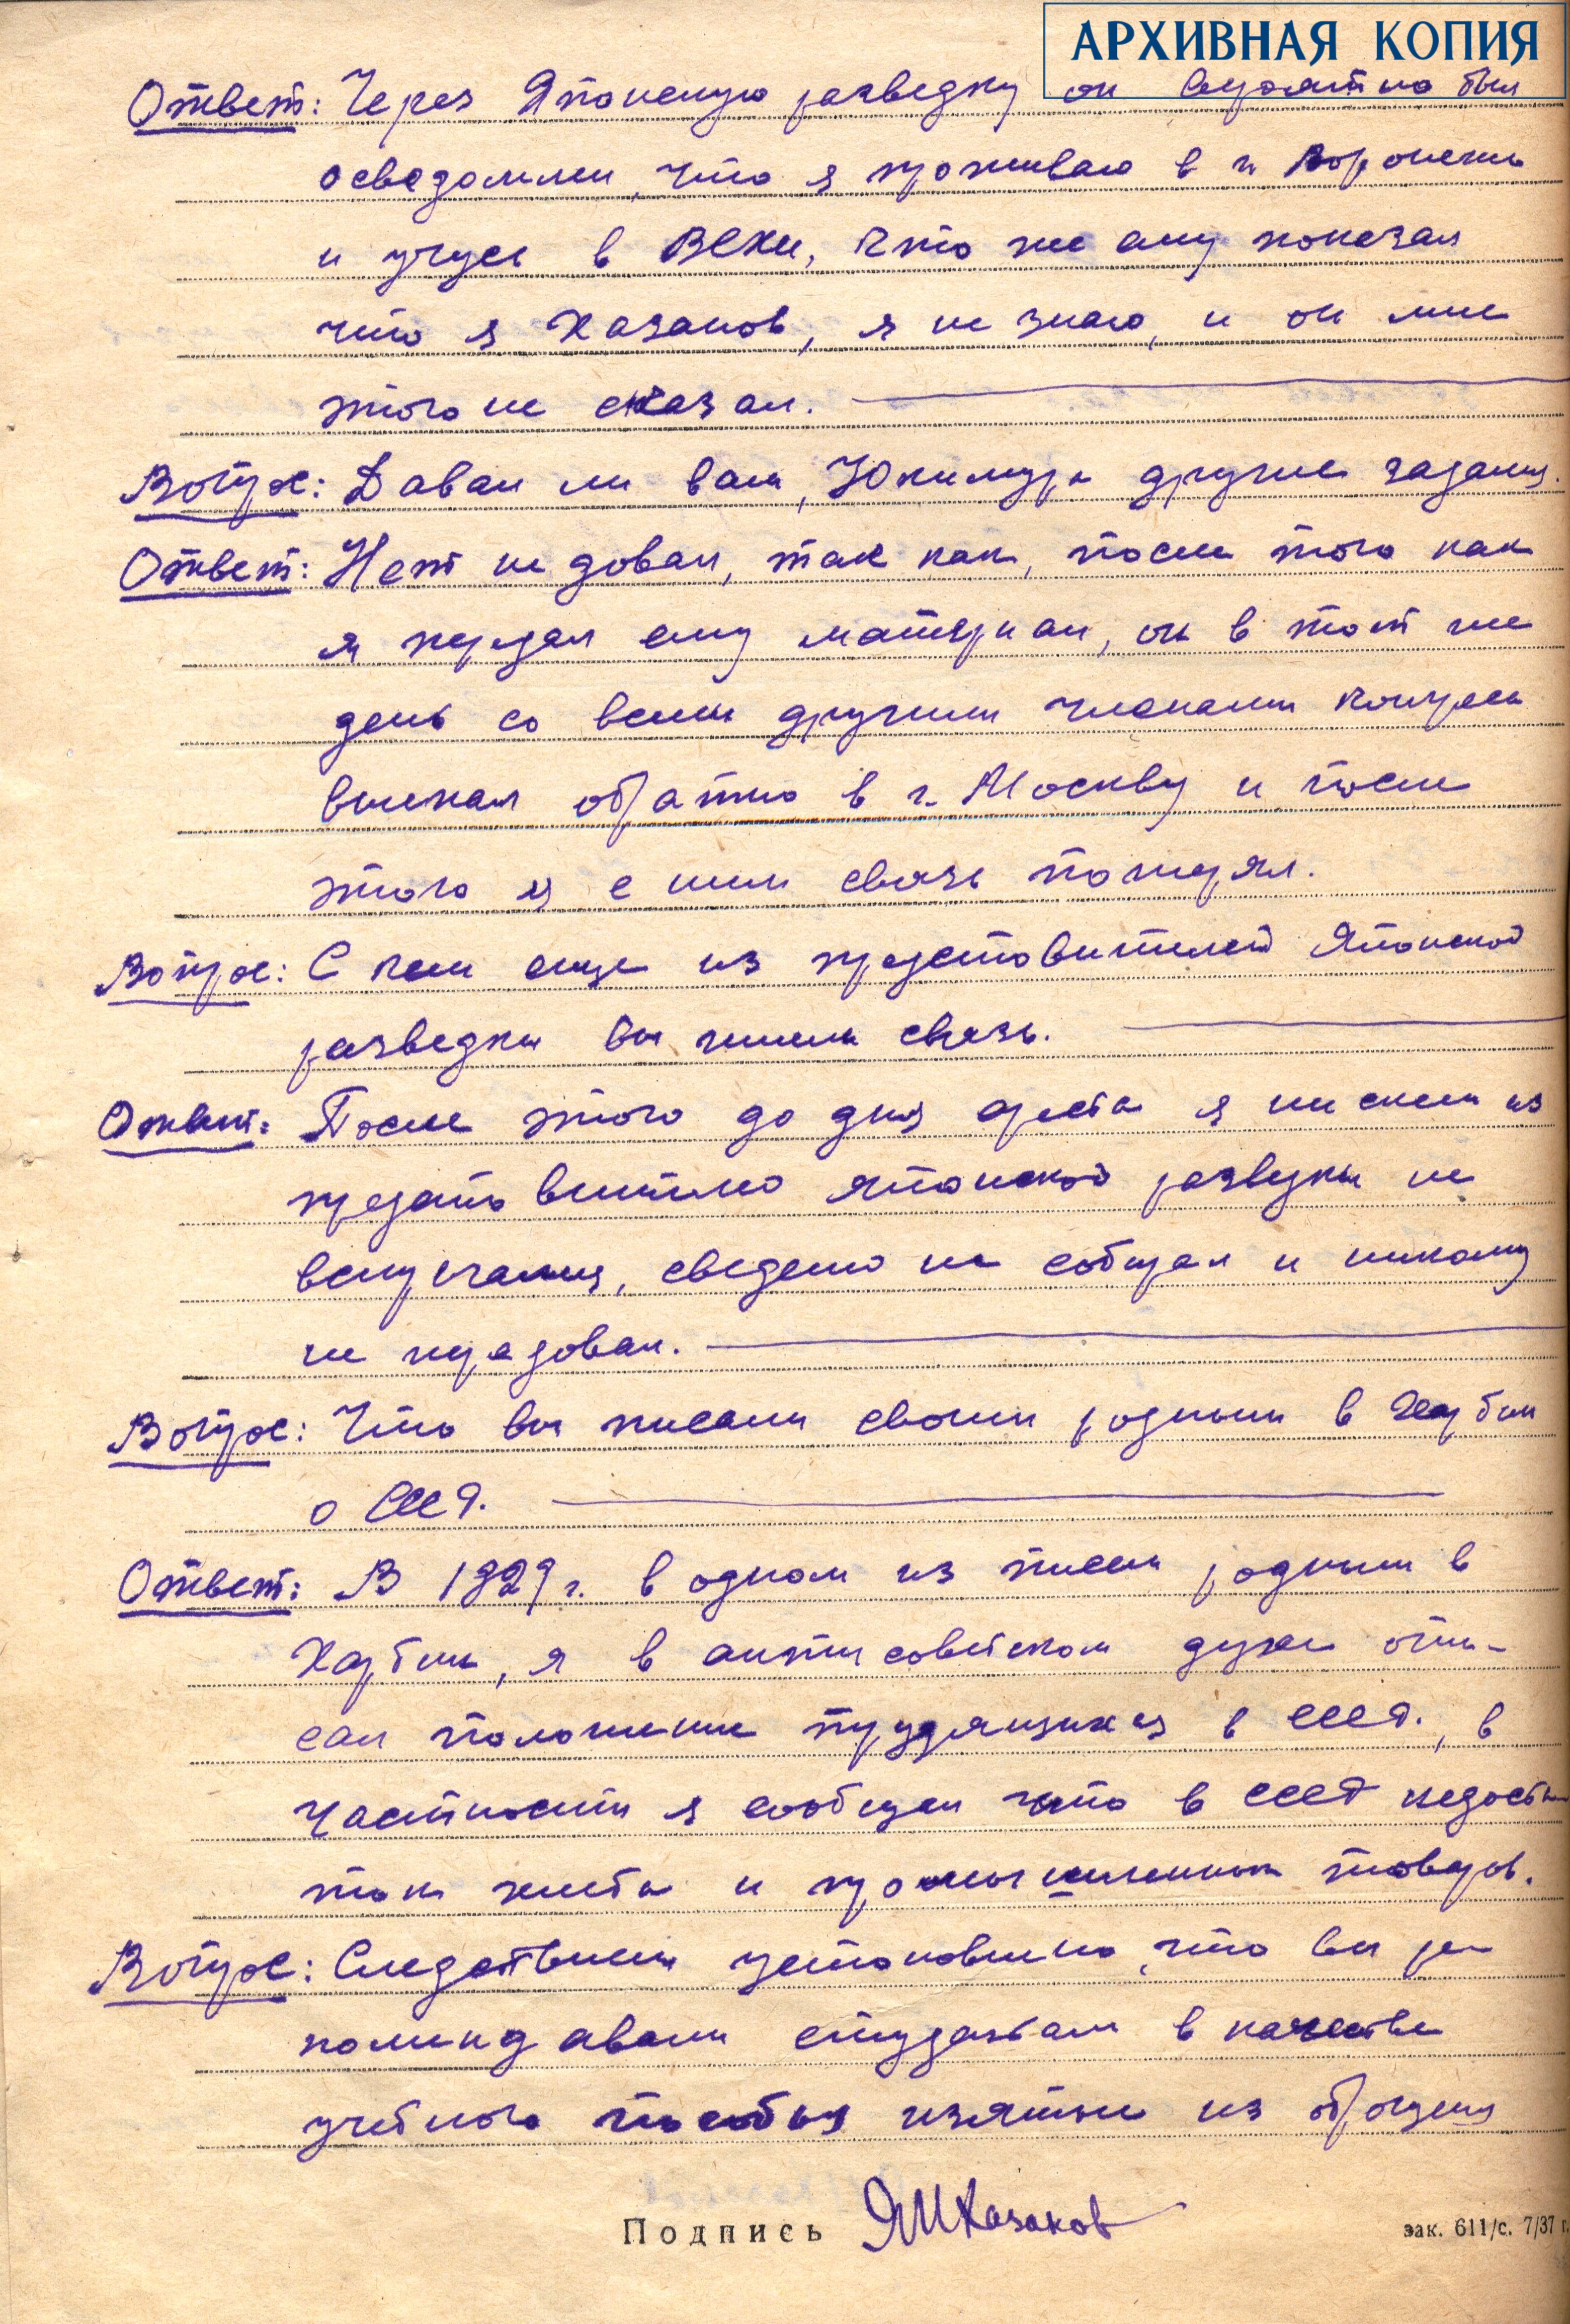 АРХИВНАЯ КОПИЯ
Ответ: Через Японскую разведку он вероятно был
осведомлен, что я проживаю в г. Воронеже
и учусь в ВСХИ, кто же ему показал
что я Казаков, я не знаю, и он мне
этого не сказал.
Вопрос: Давал ли вам, Юкимура другие задания.
Ответ: Нет не довал, так как, после того как
я передал ему материал, он в тот же
день со всеми другими членами конгресса
выехал обратно в г. Москву и после
этого я с ним связь потерял.
Вопрос: С кем еще из представителей Японской
разведки вы имели связь.
Ответ: После этого до дня ареста я ни с кем из
представителей японской разведки не
встречался, сведений не сообщал и никому
не передовал.
Вопрос: Что вы писали своим родным в Харбин
о СССР.
Ответ: В 1929 г. в одном из писем родным в
Харбин, я в антисоветском духе опи-
сал положение трудящихся в СССР., в
частности я сообщал что в СССР недоста
ток хлеба и промышленных товаров.
Вопрос: Следствием установлено, что вы ре
комендавали студентам в качестве
учебного пособия изятые из обращения
Подпись ЯМКазаков
зак. 611/с. 7/37 г.